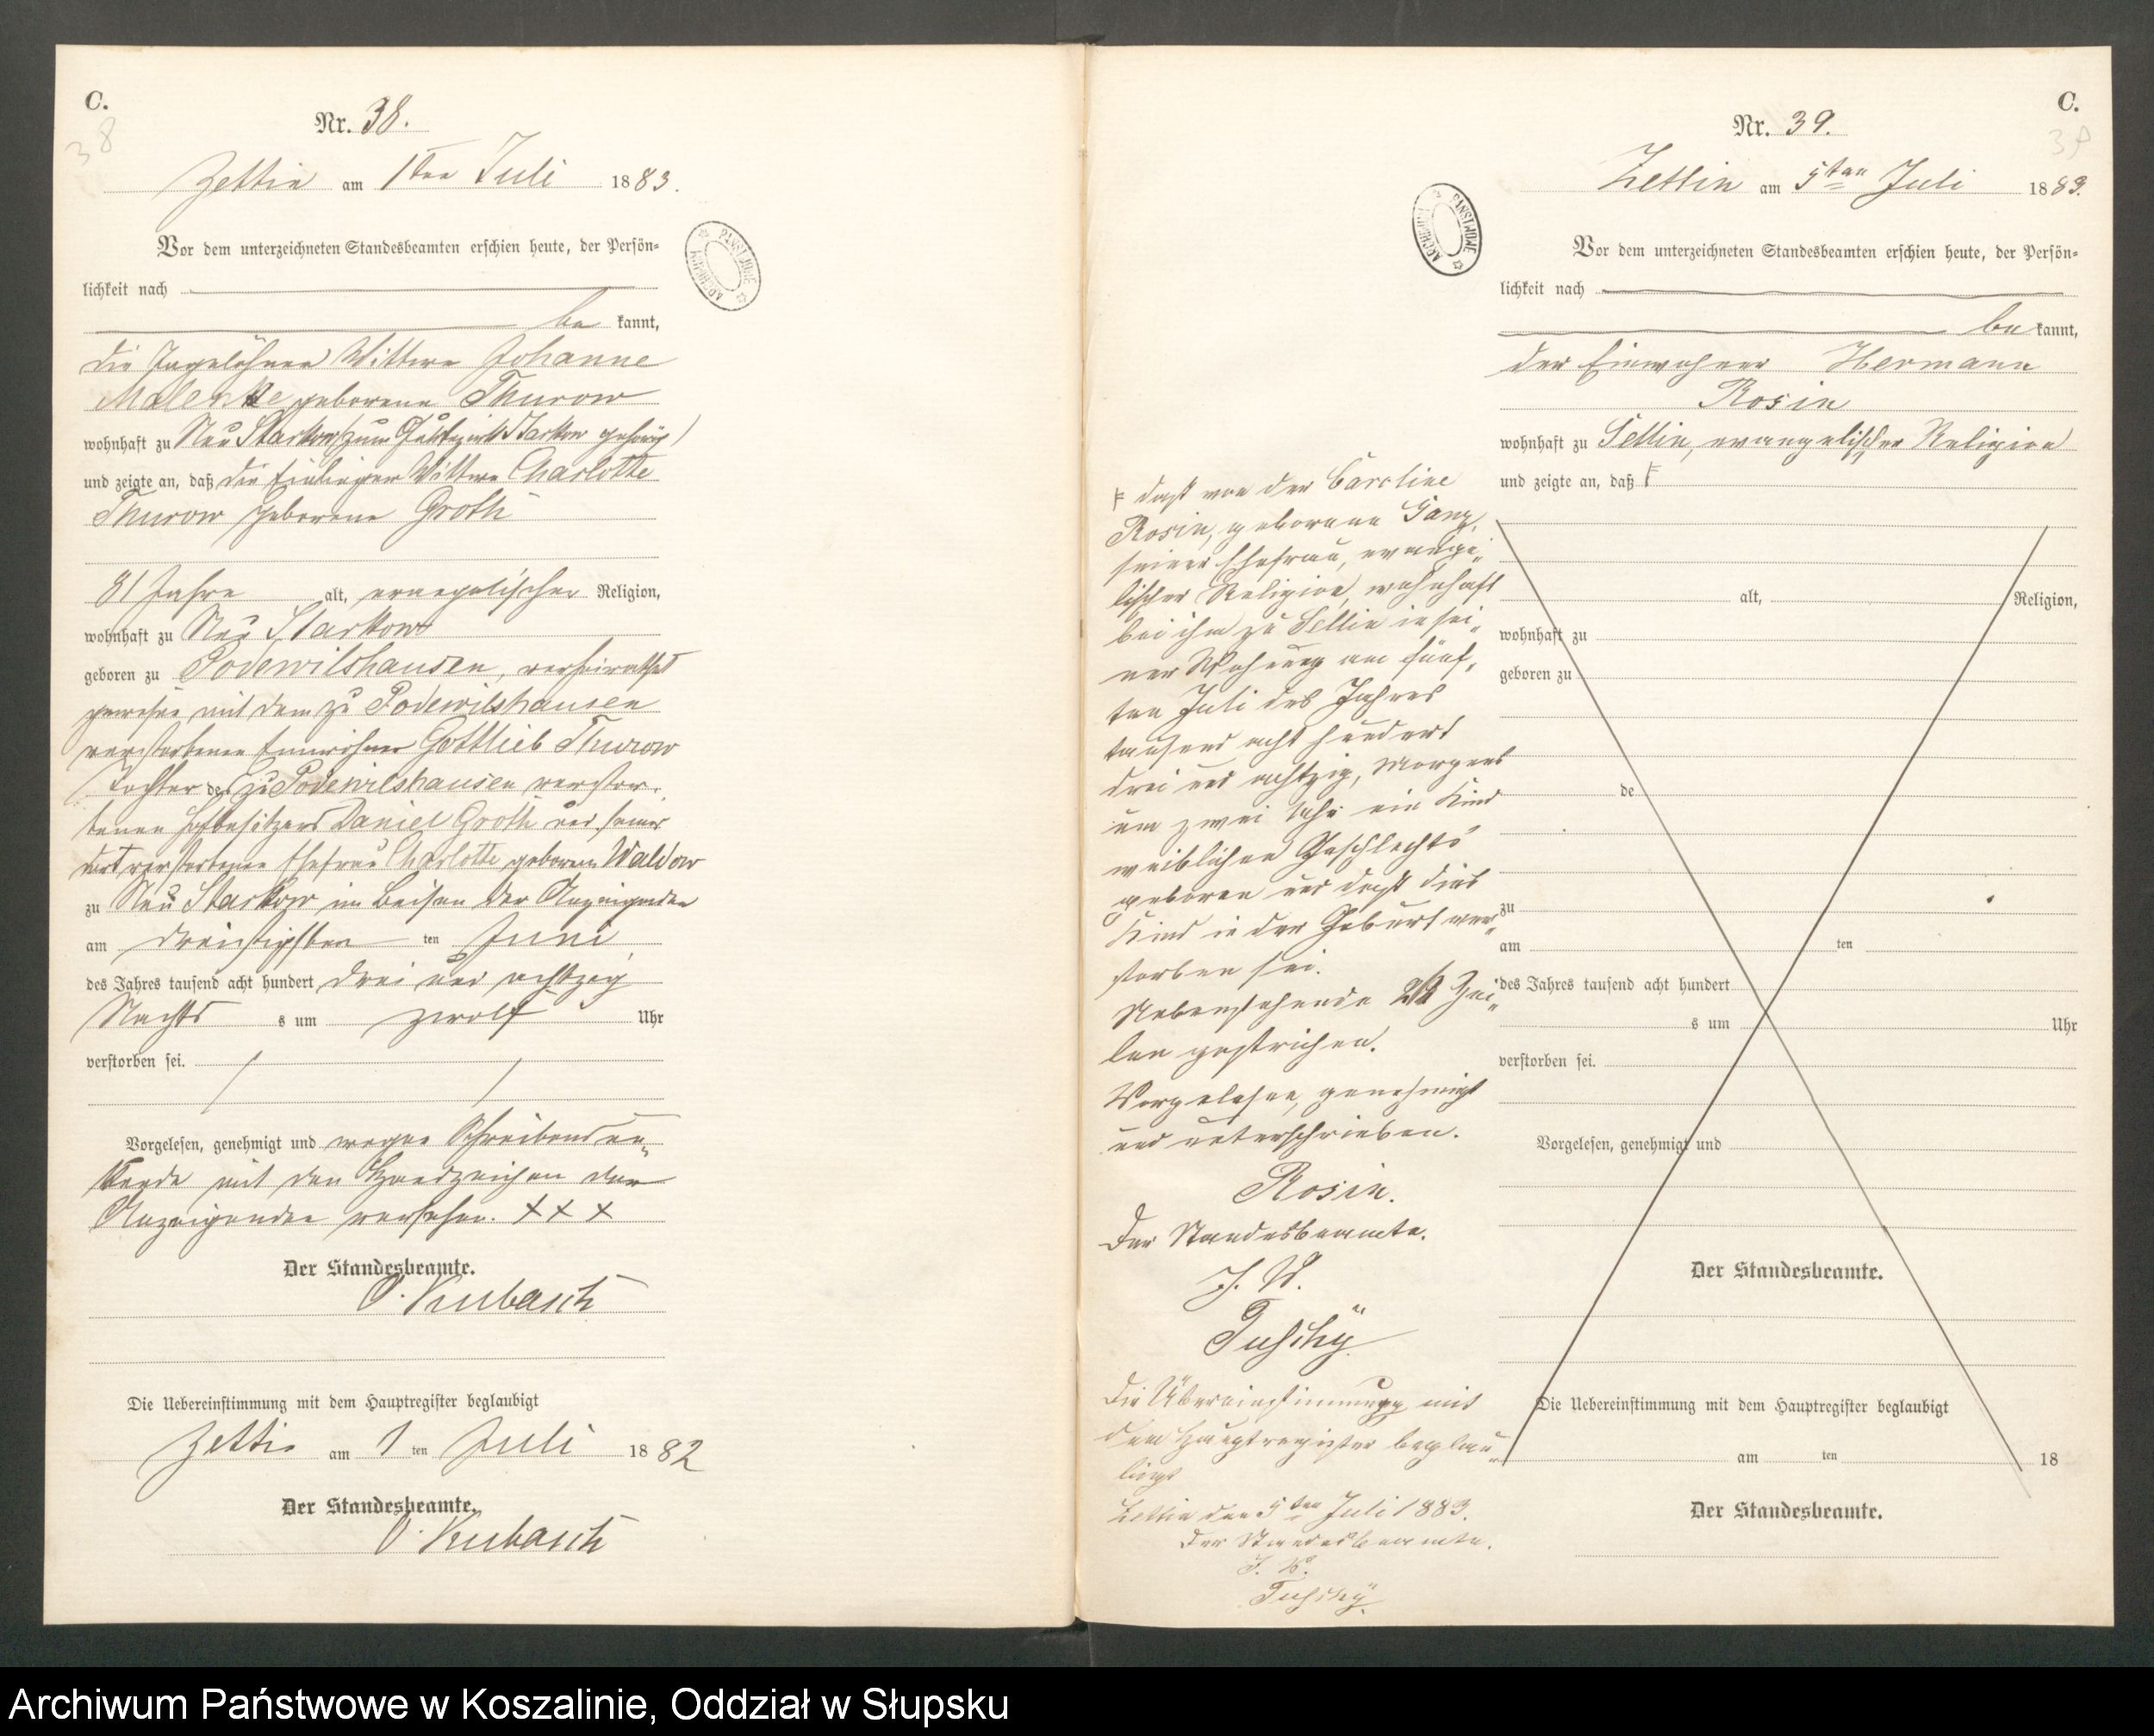 C.
38
Nr. 38.
Zettin am 1ten Juli 1883.
Vor dem unterzeichneten Standesbeamten erschien heute, der Persön-
lichkeit nach
be kannt,
die Tagelöhner Wittwe Johanne
Malenke geborene Thurow
wohnhaft zu Neu Starkow (zum Gutsbezirk Starkow gehörig)
und zeigte an, daß die Einlieger Wittwe Charlotte
Thurow geborene Groth
81 Jahre alt, evangelischer Religion,
wohnhaft zu Neu Starkow
geboren zu Podewilshausen, verheirathet
gewesen mit dem zu Podewilshausen
verstorbenen Einwohner Gottlieb Thurow
Tochter des zu Podewilshausen verstor-
benen Hofbesitzers Daniel Groth und seiner
dort verstorbenen Ehefrau Charlotte geborene Waldow
zu Neu Starkow im Beisein der Anzeigenden
am dreißigsten ten Juni
des Jahres tausend acht hundert drei und achtzig
Nachts s um zwölf Uhr
verstorben sei.
Vorgelesen, genehmigt und wegen Schreibensun-
kunde mit den Handzeichen der
Anzeigenden versehen. +++
Der Standesbeamte.
O. Kubasch
Die Uebereinstimmung mit dem Hauptregister beglaubigt
Zettin am 1 ten Juli 1882
Der Standesbeamte.
O. Kubasch
ARCHIWUM PAŃSTWOWE
C.
39
Nr. 39.
Zettin am 5ten Juli 1883.
Vor dem unterzeichneten Standesbeamten erschien heute, der Persön-
lichkeit nach
be kannt,
der Einwohner Hermann
Rosin
wohnhaft zu Sellin, evangelischer Religion
und zeigte an, daß F
alt, Religion,
wohnhaft zu
geboren zu
de
zu
am ten
des Jahres tausend acht hundert
s um Uhr
verstorben sei.
Vorgelesen, genehmigt und
Der Standesbeamte.
Die Uebereinstimmung mit dem Hauptregister beglaubigt
am ten 18
Der Standesbeamte.
ARCHIWUM PAŃSTWOWE
F daß von der Caroline
Rosin, geborene Ganz,
seiner Ehefrau, evange-
lischer Religion, wohnhaft
bei ihm zu Sellin in sei-
ner Wohnung am fünf-
ten Juli des Jahres
tausend acht hundert
drei und achtzig, Morgens
um zwei Uhr ein Kind
weiblichen Geschlechts
geboren und daß dies
Kind in der Geburt ver-
storben sei.
Nebenstehende Zei-
len gestrichen.
Vorgelesen, genehmigt
und unterschrieben.
Rosin.
Der Standesbeamte.
J. V.
Tuschÿ
Die Übereinstimmung mit
dem Hauptregister beglau-
bigt
Zettin den 5ten Juli 1883.
Der Standesbeamte.
J. V.
Tuschÿ.
Archiwum Państwowe w Koszalinie, Oddział w Słupsku